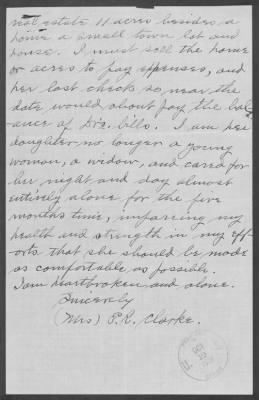 real estate 11 acres besides a
home a small town lot and
house. I must sell the home
or acres to pay expenses, and
her last check so near the
date would about pay the bal-
ance of Drs. bills. I am her
daughter no longer a young
woman, a widow, and cared for
her night and day almost
entirely alone for the five
months time, imparing my
health and strength in my eff-
orts that she should be made
as comfortable as possible.
I am heartbroken and alone.
Sincerely
Mrs) P.R. Clarke.